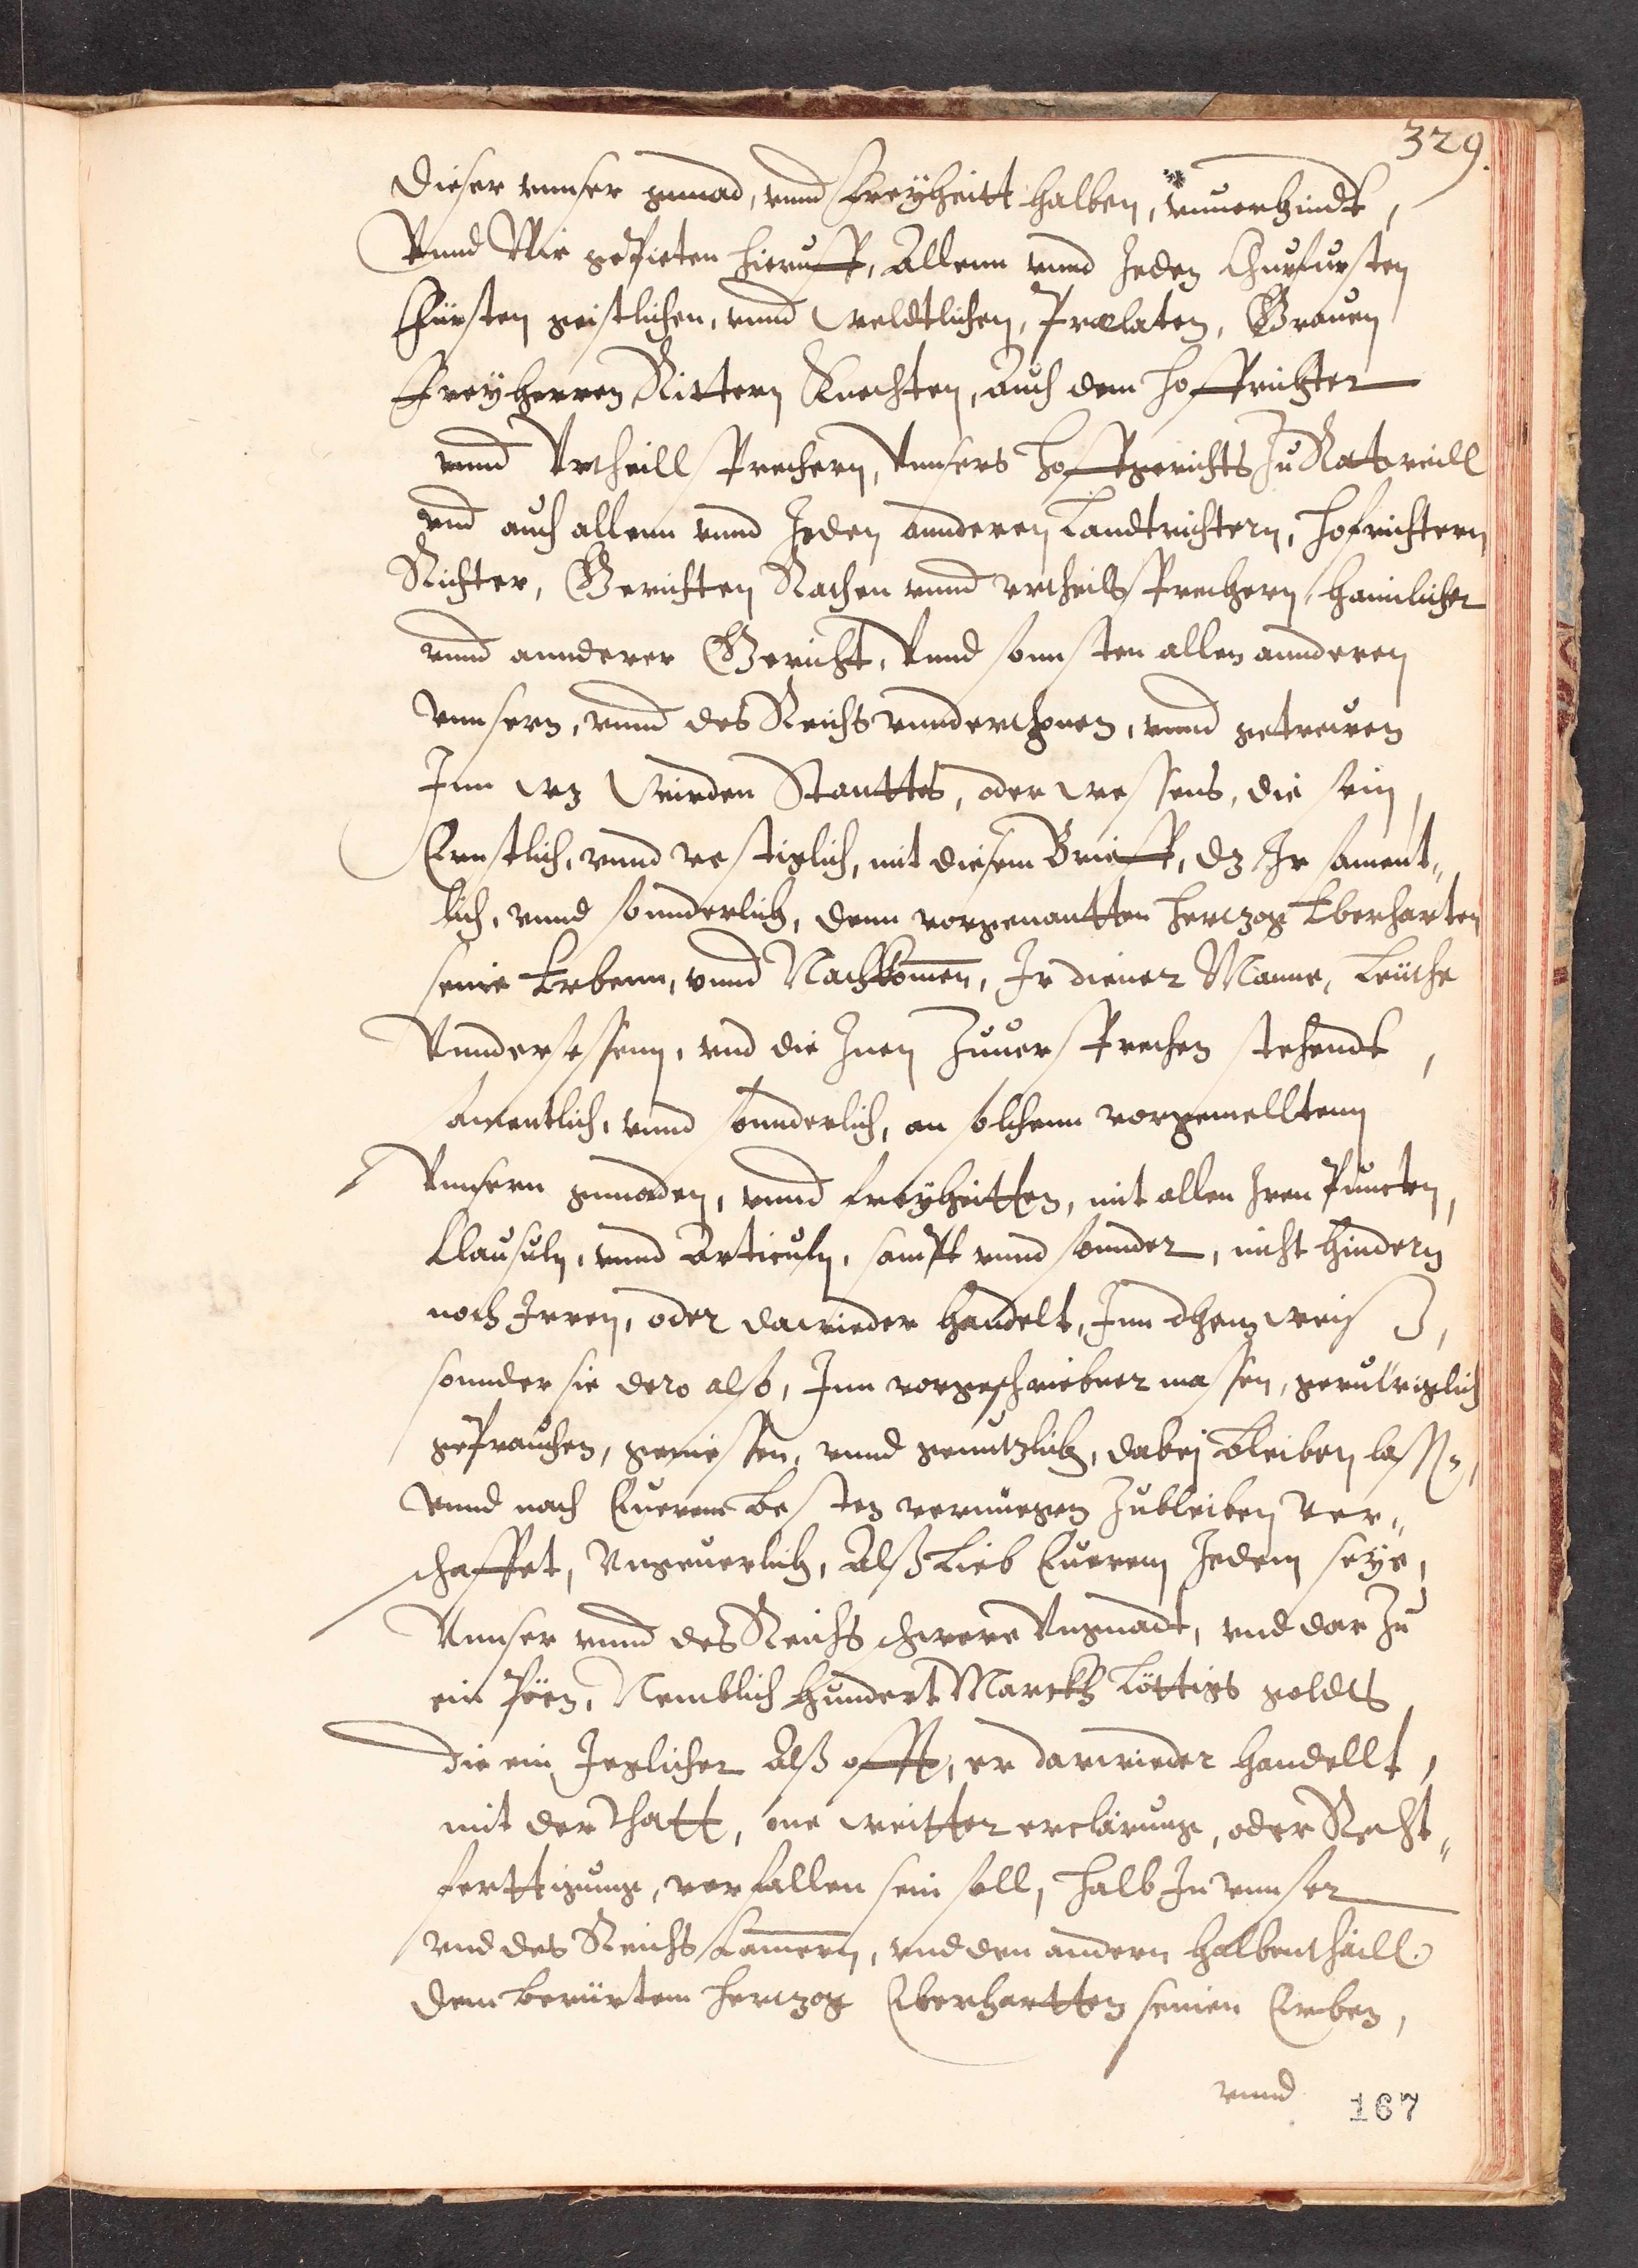 329.
dieser vnnser gnnad, vnnd Freyheitt halben, vnuerhindt,
Vnnd Wir gepieten hieruff, Allenn vnnd Jeden Churfursten
Fürsten geistlichen, vnnd weldtlichen, Prælaten, Grauen
Freyherren Rittern Knechten, Auch dem hoffrichter
vnnd Vrtheill Sprechern, Vnnsers hoffgerichts Zu Rotweill
vnd auch allenn vnnd Jeden annderen Landtrichtern, hofrichtern
Richter, Gerichten Rathen vnnd vrtheilsprechern, haimlicher
vnnd annderer Gericht, Vnnd sonnsten allen annderen
vnnsern, vnnd des Reichs vnnderthonen, vnnd getrewen
Jnn wz Wirden Stanttes, oder wessens, die sein,
Ernstlich, vnnd vestiglich, mit diesem Brieff, dz Jr sament„
lich, vnnd sonnderlich, denn vorgenantten herczog Eberharten
seine Erbenn, vnnd Nachkomen, Jr diener Manne, Leüthe
Vnndersessenn, vnd die Jnen Zuuersprechen stehendt,
samentlich, vnnd sonnderlich, an solchenn vorgemelltenn
Vnnsern gnnaden, vnnd freyheitten, mit allen Jren Puncten,
Clausuln, vnnd Articuln, sampt vnnd sonnder, nicht hindern
noch Jrren, oder dawieder handelt, Jnn dhein weiß,
sonnder sie dero also, Jnn vorgeschriebner massen, geruwiglich
geprauchen, geniessen, vnnd genntzlich, dabej bleiben lassen,
vnnd nach Euerem besten vermügen Zubleiben ver„
schaffet, Vngeuerlich, Alß Lieb Euerem Jedem seye,
Vnnser vnnd des Reichs schwere Vngnadt, vnd dar Zu
ein Pöen, Nemblich hundert Marckh Löttigs goldts
die ein Jeglicher Alß offt, er darwieder handellt,
mit der thatt, one weitter erclärung, oder Recht„
ferttigung, verfallen sein soll, halb Jn vnnser
vnd des Reichs Camern, vnd den andern halbenthaill
dem berürtem herczog Eberhartten seinen Erben,
vnnd
167